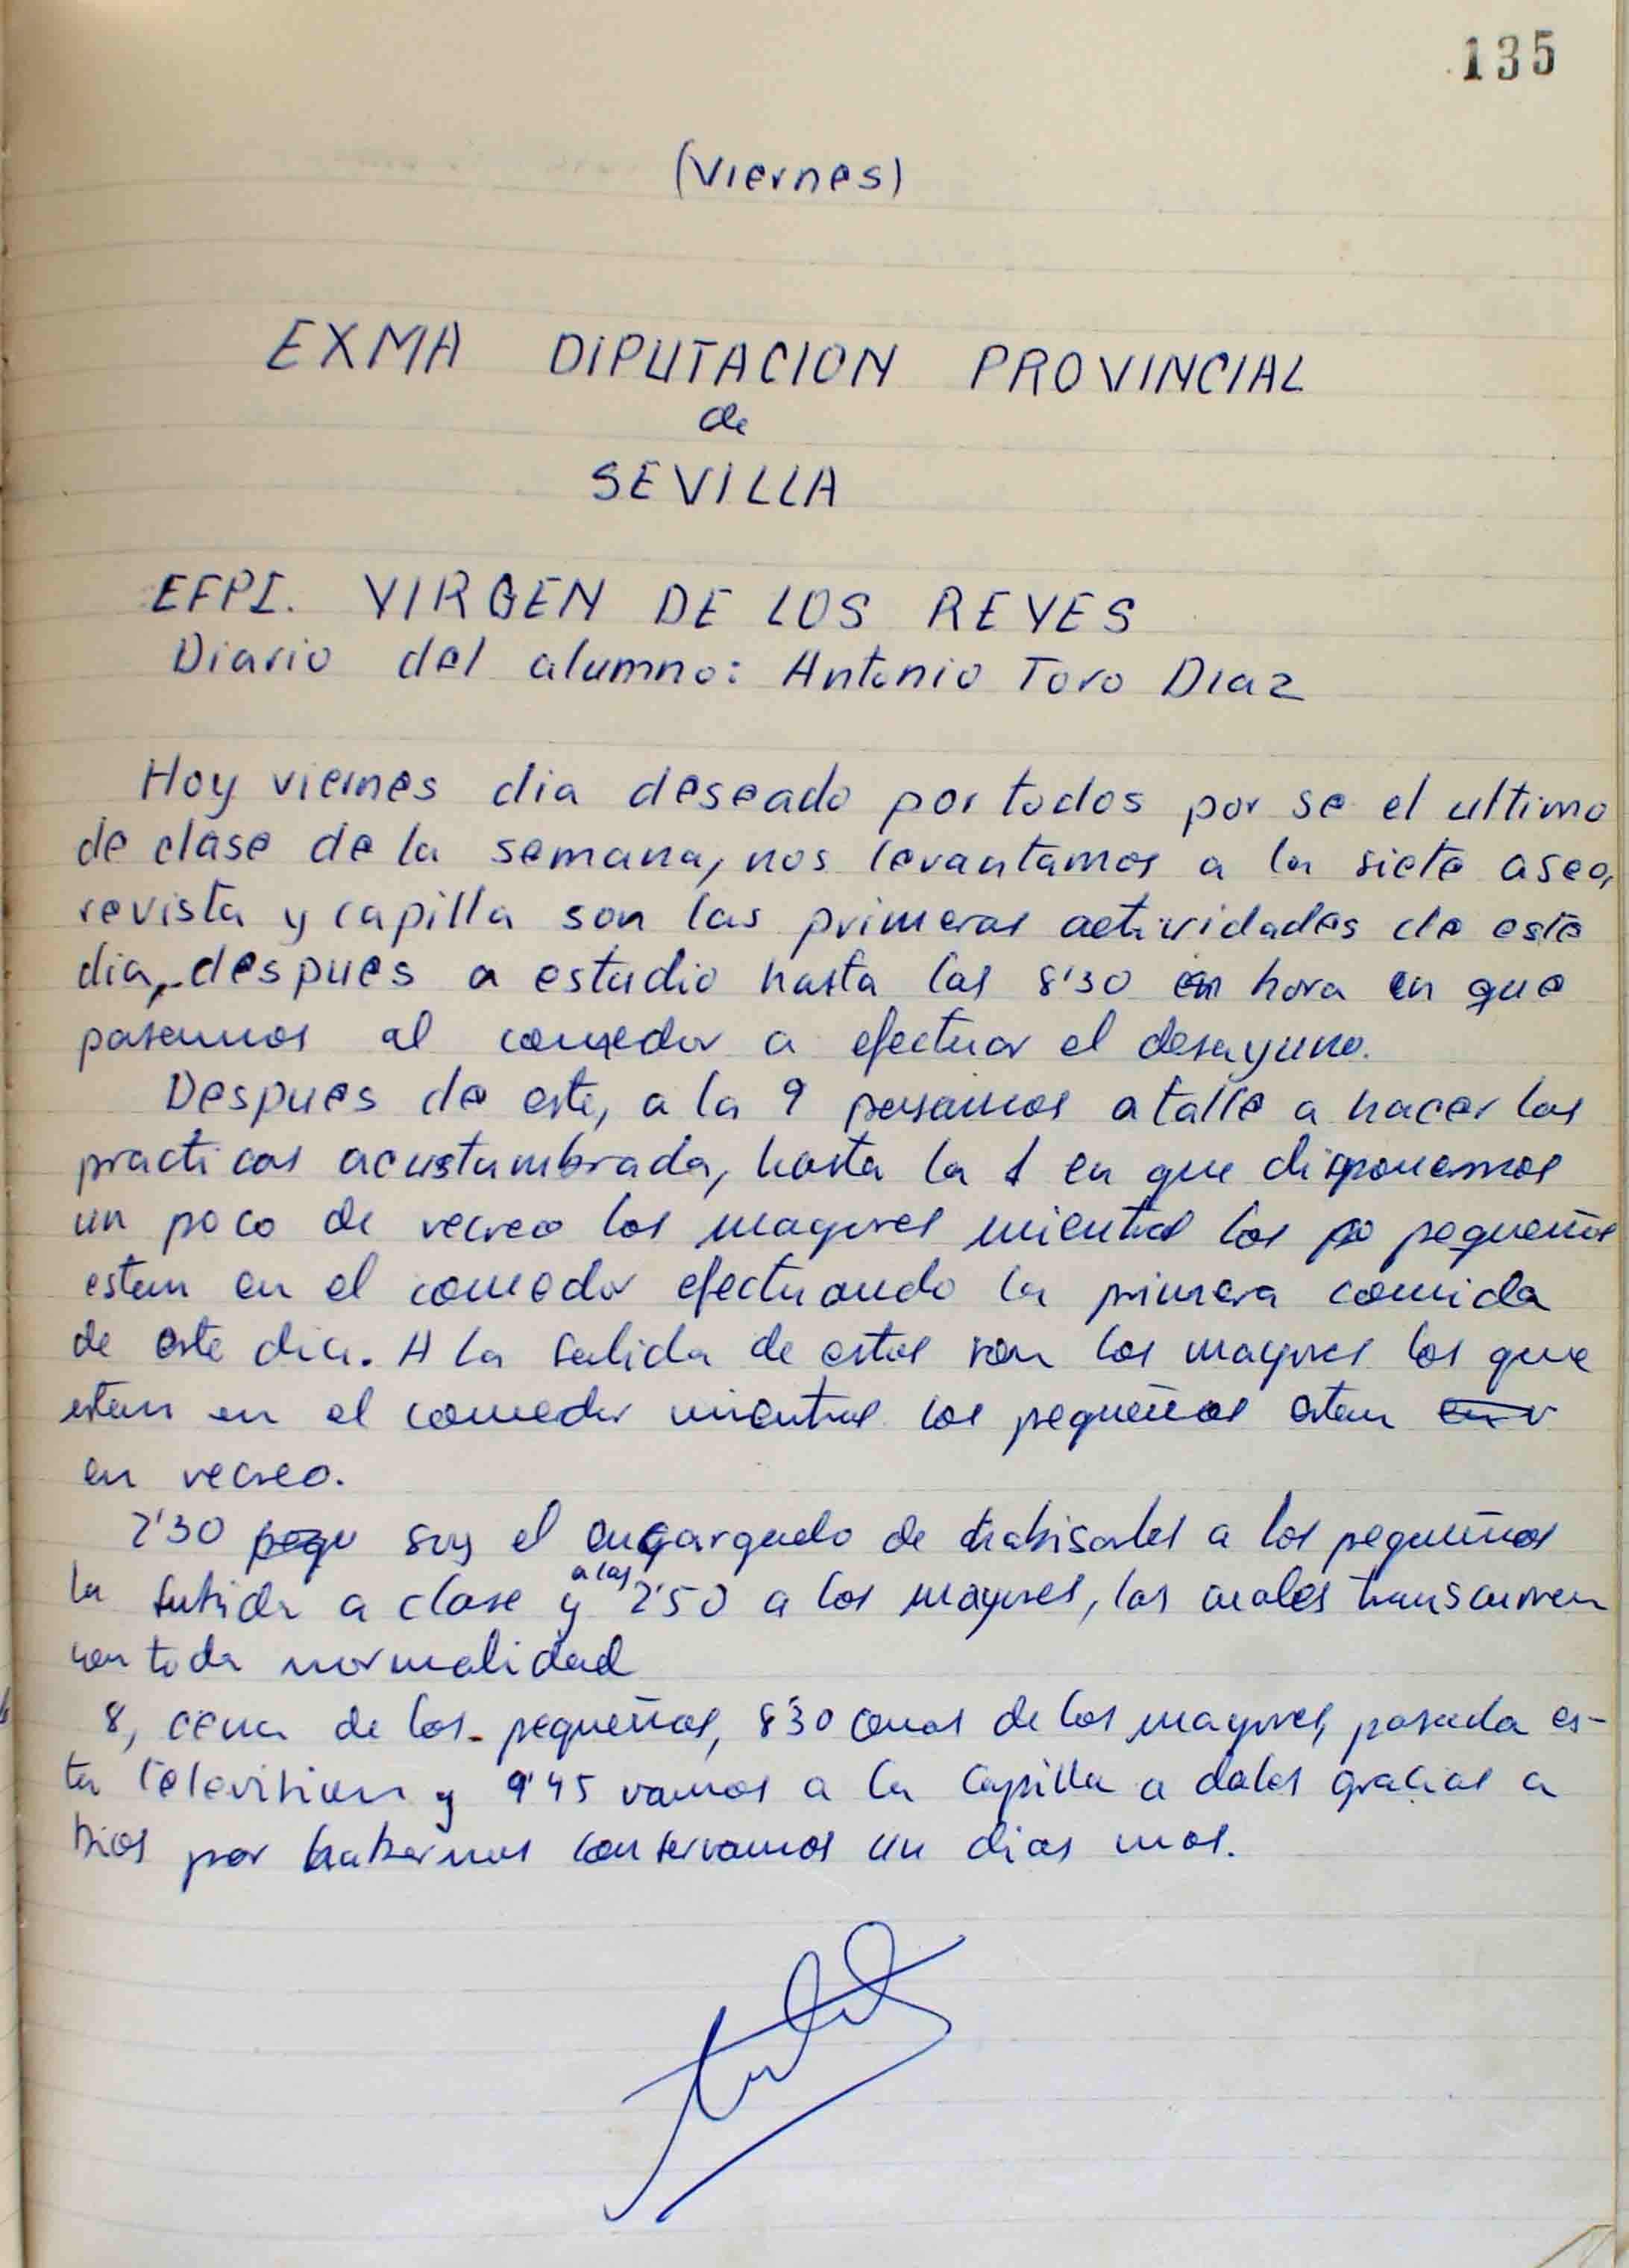 135
(Viernes)
EXMA DIPUTACION PROVINCIAL
de
SEVILLA
EFPI. VIRGEN DE LOS REYES
Diario del alumno: Antonio Toro Diaz
Hoy viernes dia deseado por todos por se el ultimo
de clase de la semana, nos levantamos a la siete aseo,
revista y capilla son las primeras actividades de este
dia, despues a estudio hasta las 8'30 en hora en que
pasamos al comedor a efectuar el desayuno.
Despues de este, a la 9 pasamos a talle a hacer las
practicas acustumbrada, hasta la 1 en que disponemos
un poco de recreo los mayores mientras los po pequeños
estan en el comedor efectuando la primera comida
de este dia. A la salida de estos son los mayores los que
estan en el comedor mientras los pequeños estan en r
en recreo.
2'30 pequ soy el encargado de habisarles a los pequeños
la subida a clase y a las 2'50 a los mayores, las cuales transcurren
con toda normalidad
8, cena de los pequeños, 8'30 cenas de los mayores, pasada es-
ta television y 9'45 vamos a la capilla a dales gracias a
Dios por habernos conservamos un dias mas.